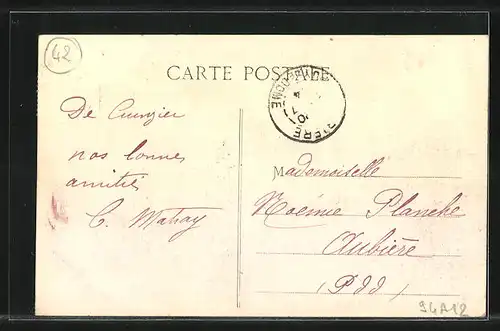 42
CARTE POSTALE
De Cunzier
nos bonnes
amitiés
C. Matray
Mademoiselle
Noémie Planche
Aubière
(Pdd)
94A12